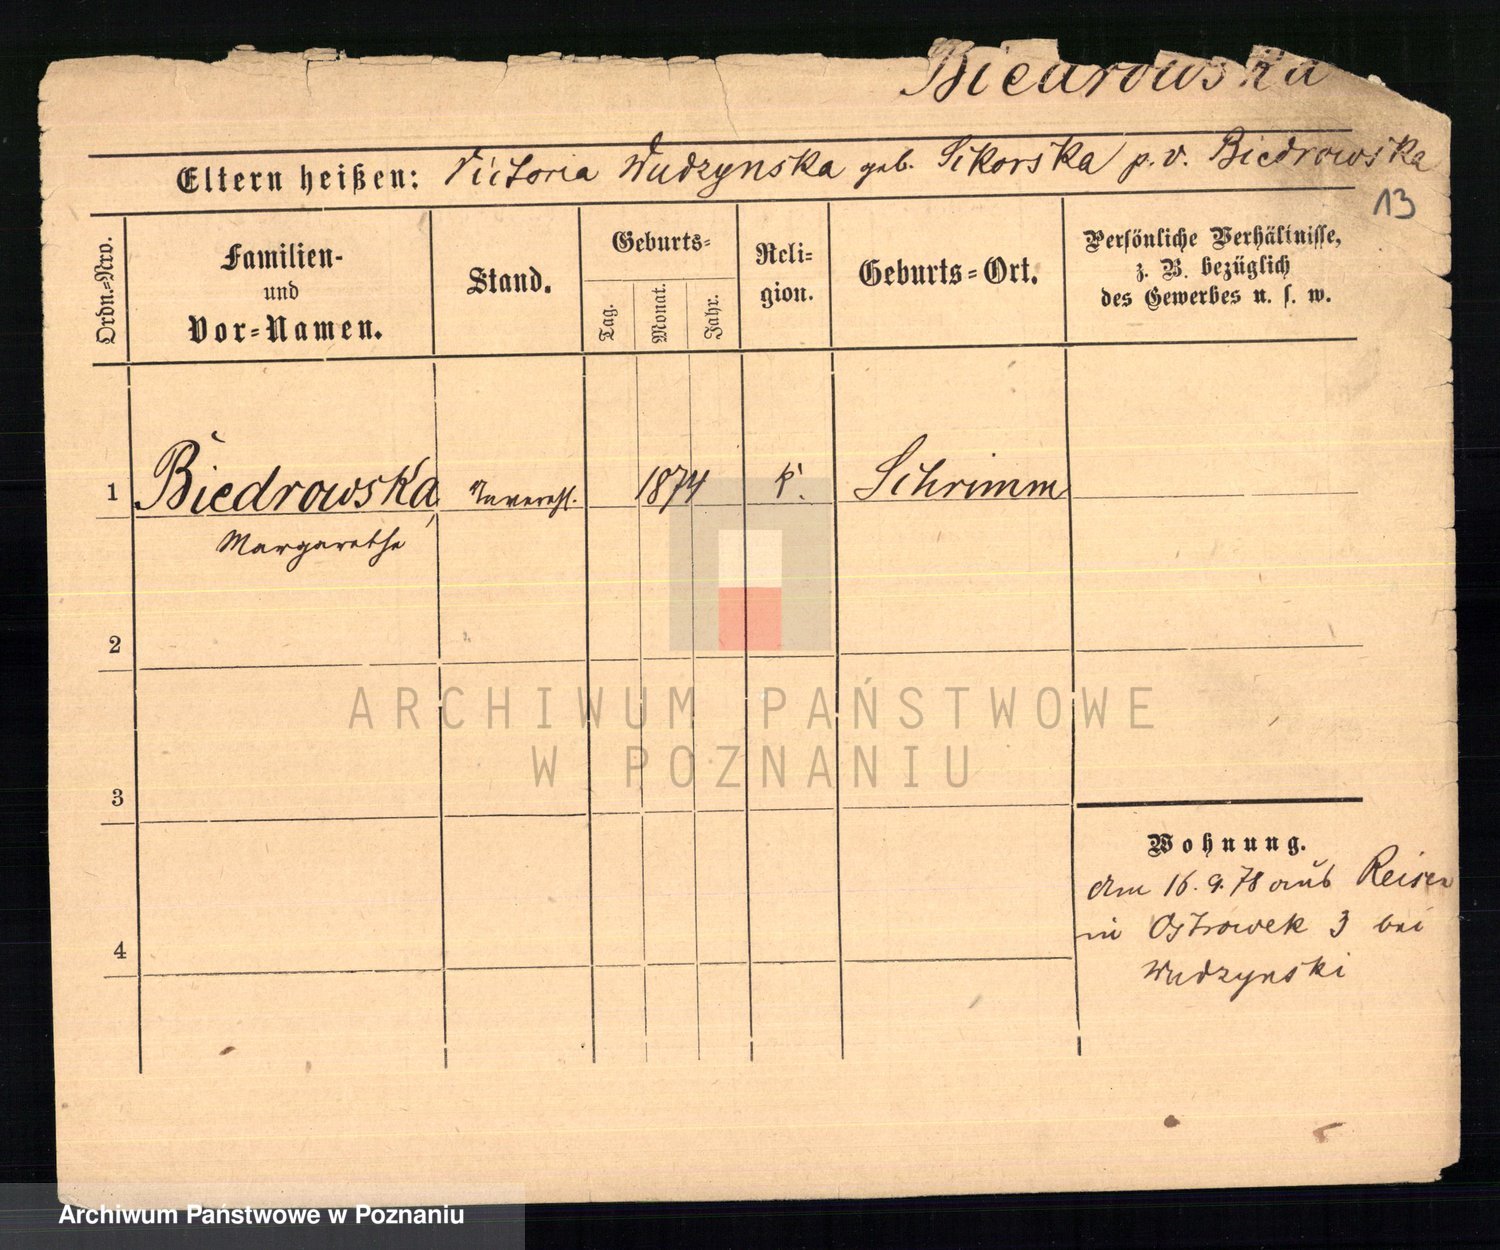 Biedrowska
Eltern heißen: Victoria Wudzynska geb. Sikorska p. v. Biedrowska
13
Ordn.=Nro.
Familien-
und
Vor=Namen.
Stand.
Geburts=
Tag.
Monat.
Jahr.
Reli-
gion.
Geburts=Ort.
Persönliche Verhältnisse,
z. B. bezüglich
des Gewerbes u. s. w.
1 Biedrowska, Unverehl. 1874 k. Schrimm
Margarethe
2
3
4
Wohnung.
Am 16. 9. 78 aus Reisen
in Ostrowek 3 bei
Wudzynski
ARCHIWUM PAŃSTWOWE
W POZNANIU
Archiwum Państwowe w Poznaniu